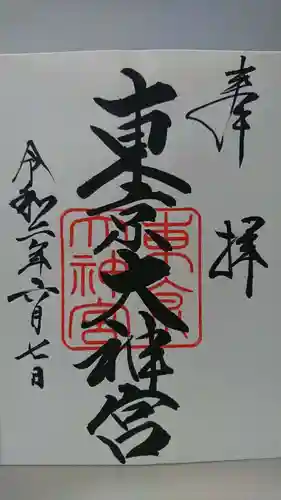 奉拝
東京大神宮
東京大神宮
令和六年六月七日